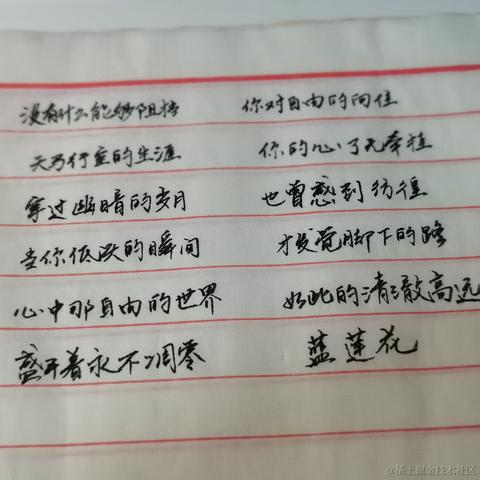 没有什么能够阻挡 你对自由的向往
天马行空的生涯 你的心了无牵挂
穿过幽暗的岁月 也曾感到彷徨
当你低头的瞬间 才发觉脚下的路
心中那自由的世界 如此的清澈高远
盛开着永不凋零 蓝莲花
@稀土掘金技术社区